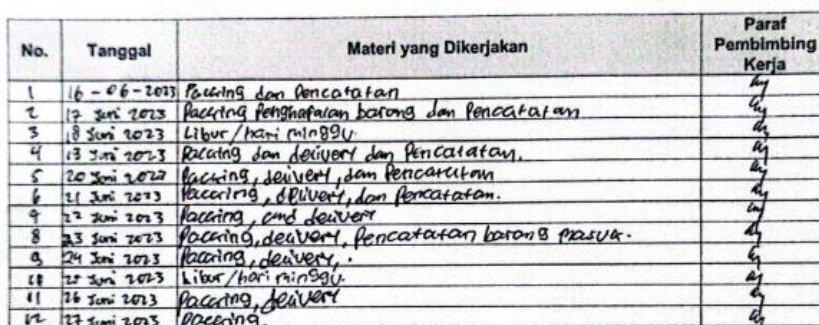 No. Tanggal Materi yang Dikerjakan Paraf Pembimbing Kerja
1 16-06-2023 Packing dan Pencatatan
2 17 Juni 2023 Packing Penghafalan barang dan Pencatatan
3 18 Juni 2023 Libur/hari minggu.
4 19 Juni 2023 Packing dan delivery dan Pencatatan.
5 20 Juni 2023 Packing, delivery, dan Pencatatan
6 21 Juni 2023 Packing, delivery, dan Pencatatan.
22 Juni 2023 Packing, and delivery
8 23 Juni 2023 Packing, delivery, Pencatatan barang masuk.
9 24 Juni 2023 Packing, delivery, .
10 25 Juni 2023 Libur/hari minggu.
11 26 Juni 2023 Packing, delivery
12 27 Juni 2023 Packing,